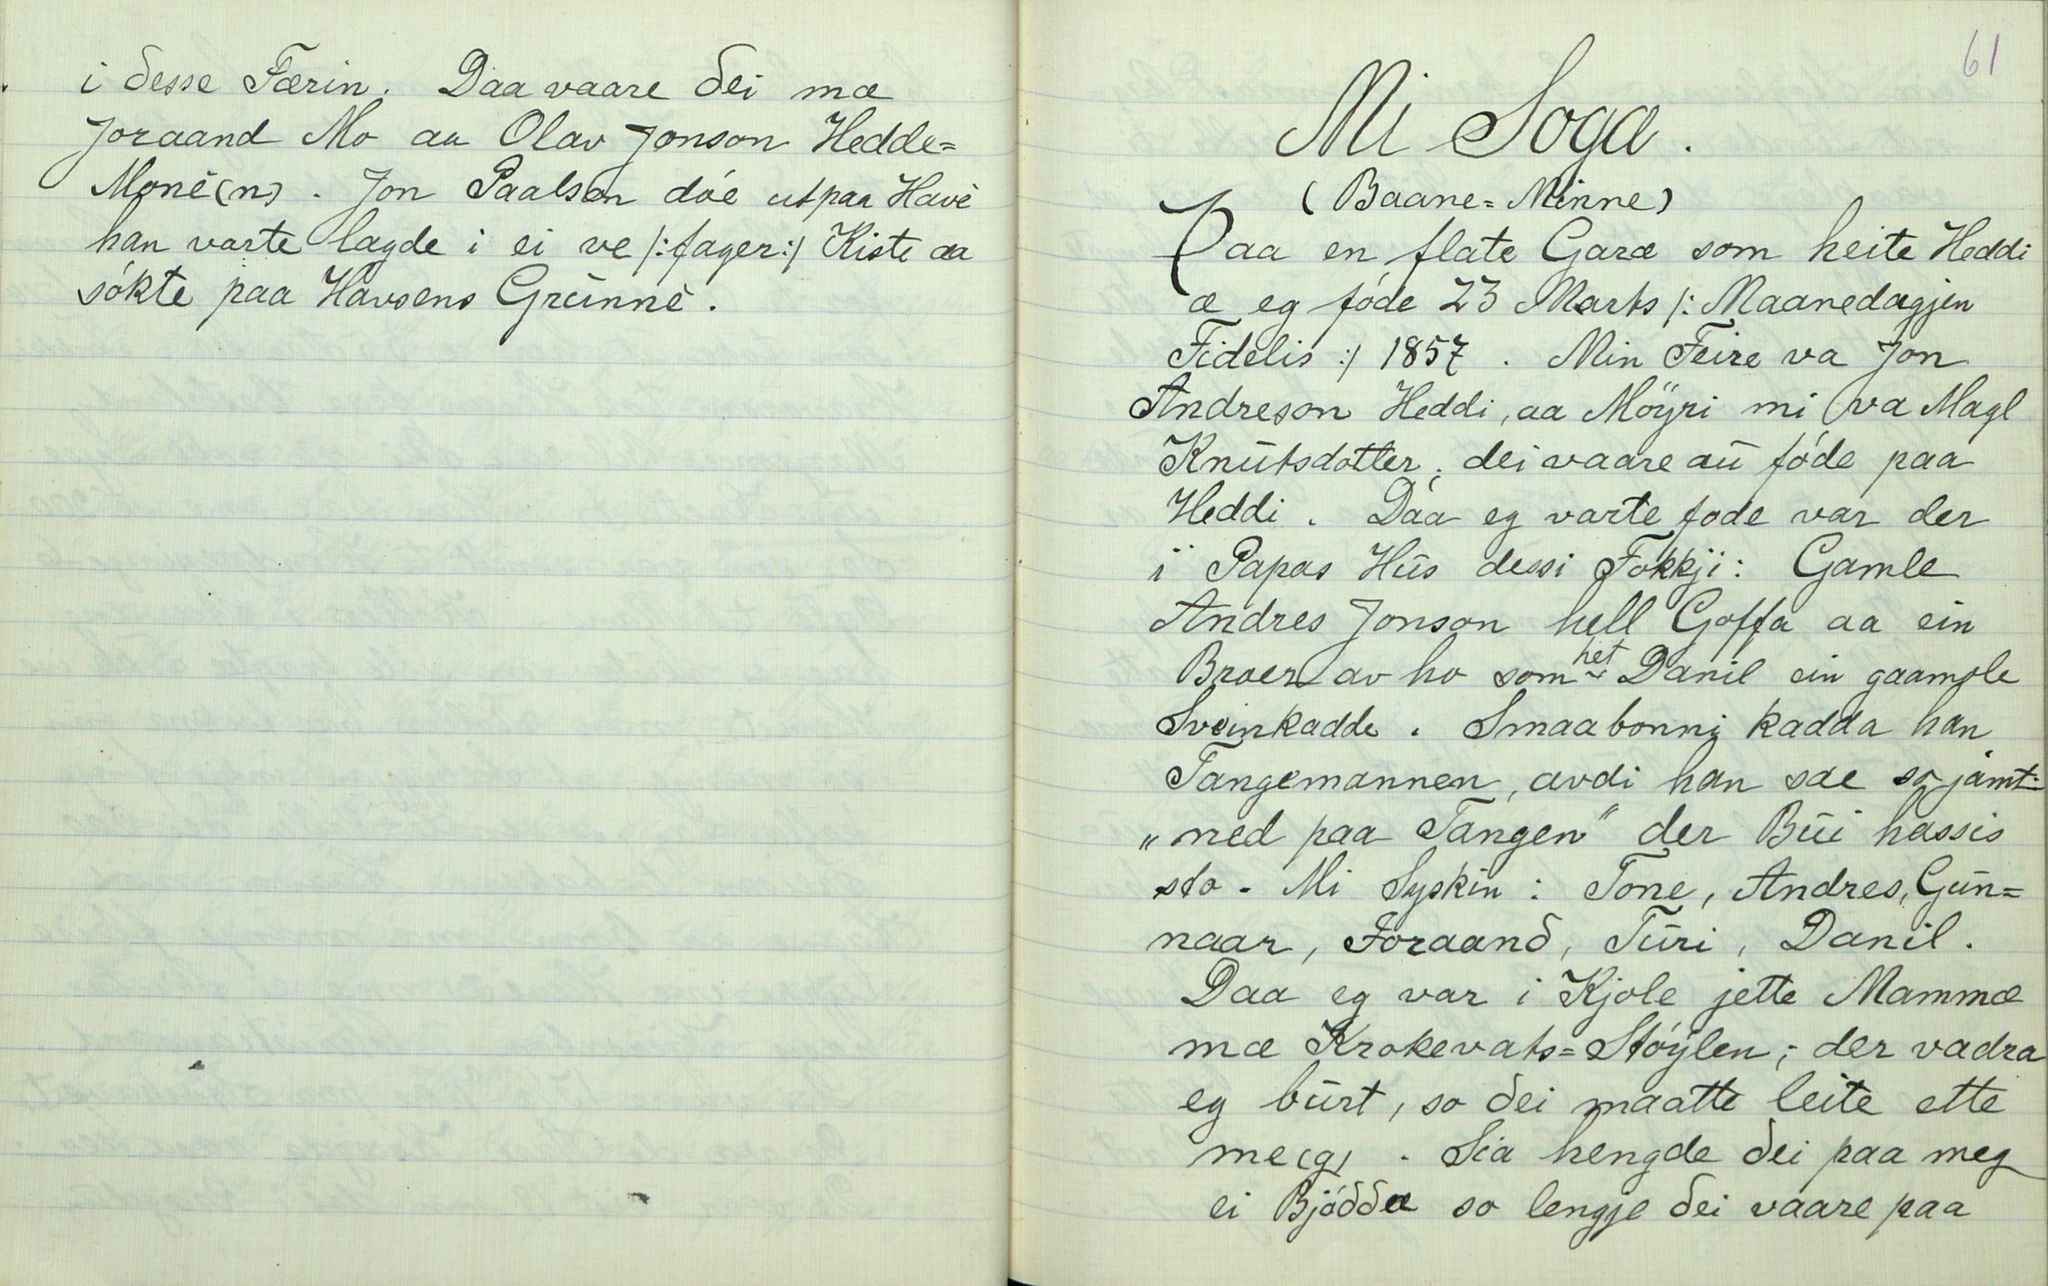 i desse Færin. Daa vaare dei mæ
Joraand Mo au Olav Jonson Hedde=
Monè(n). Jon Paalson dóe utpaa Havè
han varte lagde i ei ve /:fager:/ Kiste aa
sókte paa Havsens Grŭnnè.
61
Mi Soga.
(Baane=Minne)
Paa en flate Garæ som heite Heddi
æ eg fóde 23 Marts /: Maanedagjen
Fidelis :/ 1857. Min Feire va Jon
Andreson Heddi, aa Möyri mi va Magl
Knŭtsdotter; dei vaare aŭ fóde paa
Heddi. Daa eg varte fode var der
i Papas Hŭs dessi Fokkji: Gamle
Andres Jonson hell Goffa aa ein
Broer av ho som het Danil ein gaamole
Sveinkadde. Smaabonni kadda han
Tangemannen, avdi han sae so jamt:
„ned paa Tangen" der Bŭi hassis
sto. Mi Syskin: Tone, Andres, Gŭn=
naar, Joraand, Tŭri, Danil.
Daa eg var i Kjole jette Mammæ
mæ Krokevats=Stóylen; der vadra
eg bŭrt, so dei maatte leite ette
me(g). Sia hengde dei paa meg
ei Bjóddæ so lengje dei vaare paa